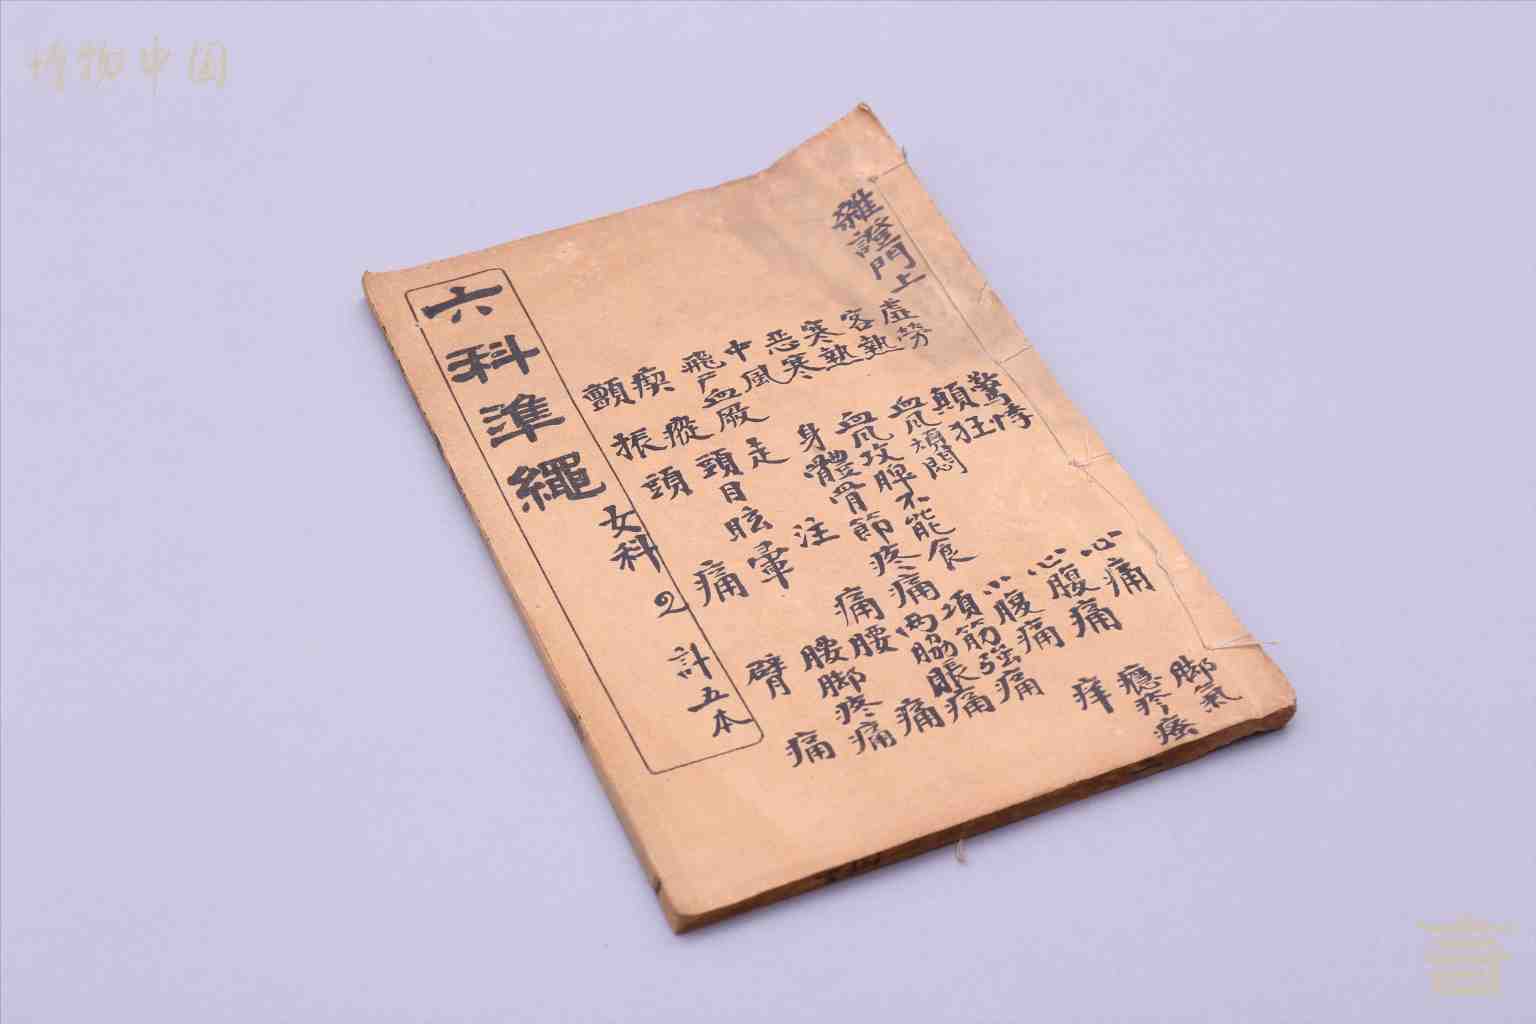 博物中国
雜證門上
虛勞
客熱
寒熱
恶寒
中風
飛尸血厥
瘈瘲
顫振
驚悸
顛狂
血風煩悶
血風攻脾不能食
身體骨節疼痛
走注痛
頭目眩暈
頭痛
心痛
心腹痛
小腹痛
項筋强痛
两脇脹痛
腰痛
腰脚疼痛
臂痛
脚氣
癮疹瘙痒
六科準繩 女科 2 計五本